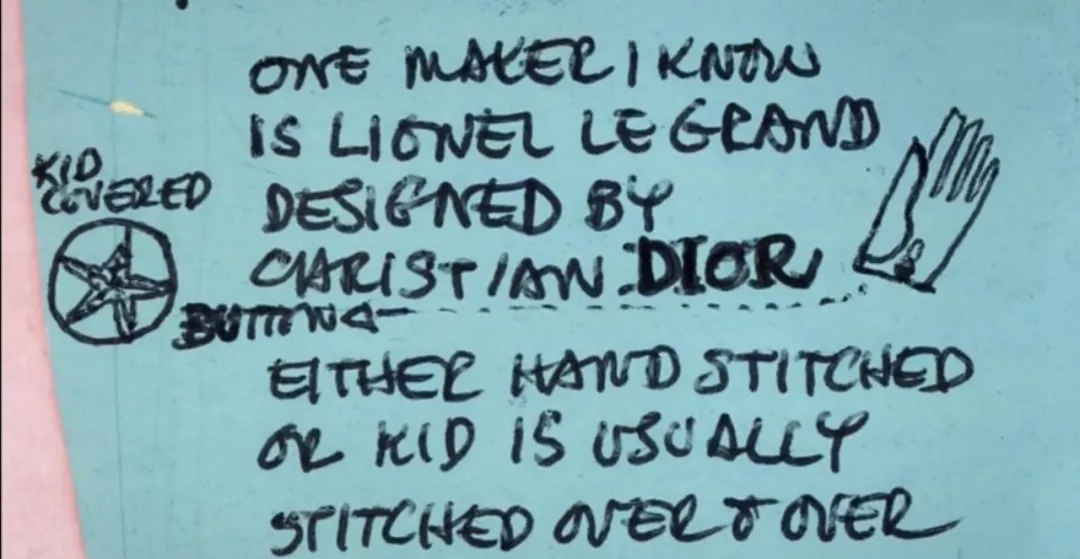 ONE MAKER I KNOW
IS LIONEL LE GRAND
KID
COVERED
DESIGNED BY
CHRISTIAN DIOR
BUTTON
EITHER HAND STITCHED
OR KID IS USUALLY
STITCHED OVER & OVER